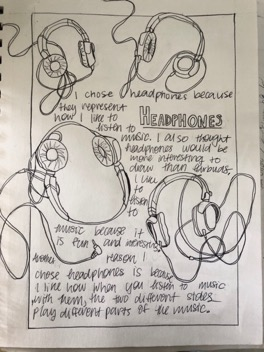 I chose headphones because
they represent
how I like to
listen to
HEADPHONES
music. I also thought
headphones would be
more interesting to
draw than earbuds.
I like
to
listen
to
music because it
is fun and interesting
Another reason I
chose headphones is because
I like how when you listen to music
with them, the two different sides
play different parts of the music.